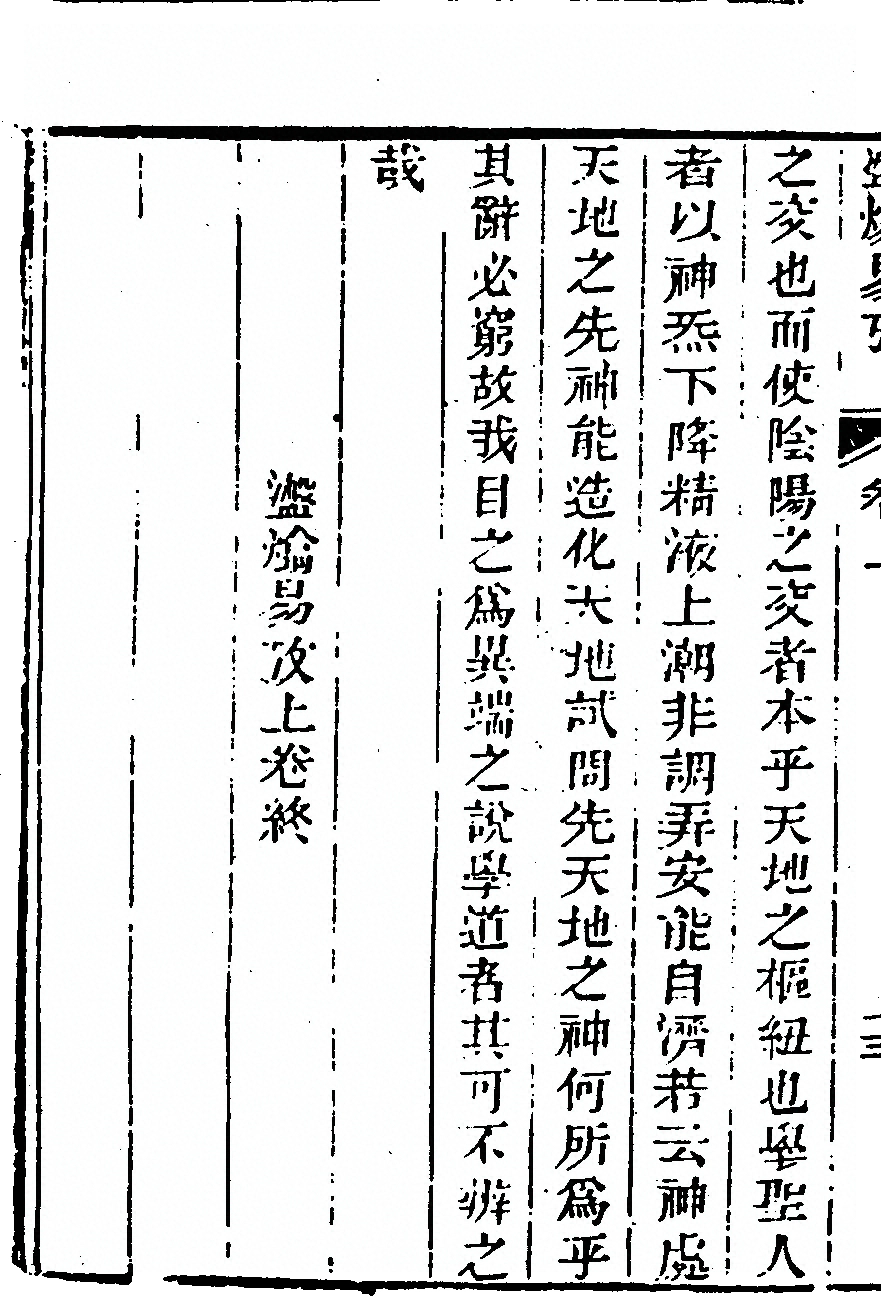 之交也而使陰陽之交者本乎天地之樞紐也舉聖人
者以神炁下降精液上潮非調弄安能自濟若云神處
天地之先神能造化天地試問先天地之神何所爲乎
其辭必窮故我目之爲異端之說學道者其可不辨之
哉
易攻上卷終